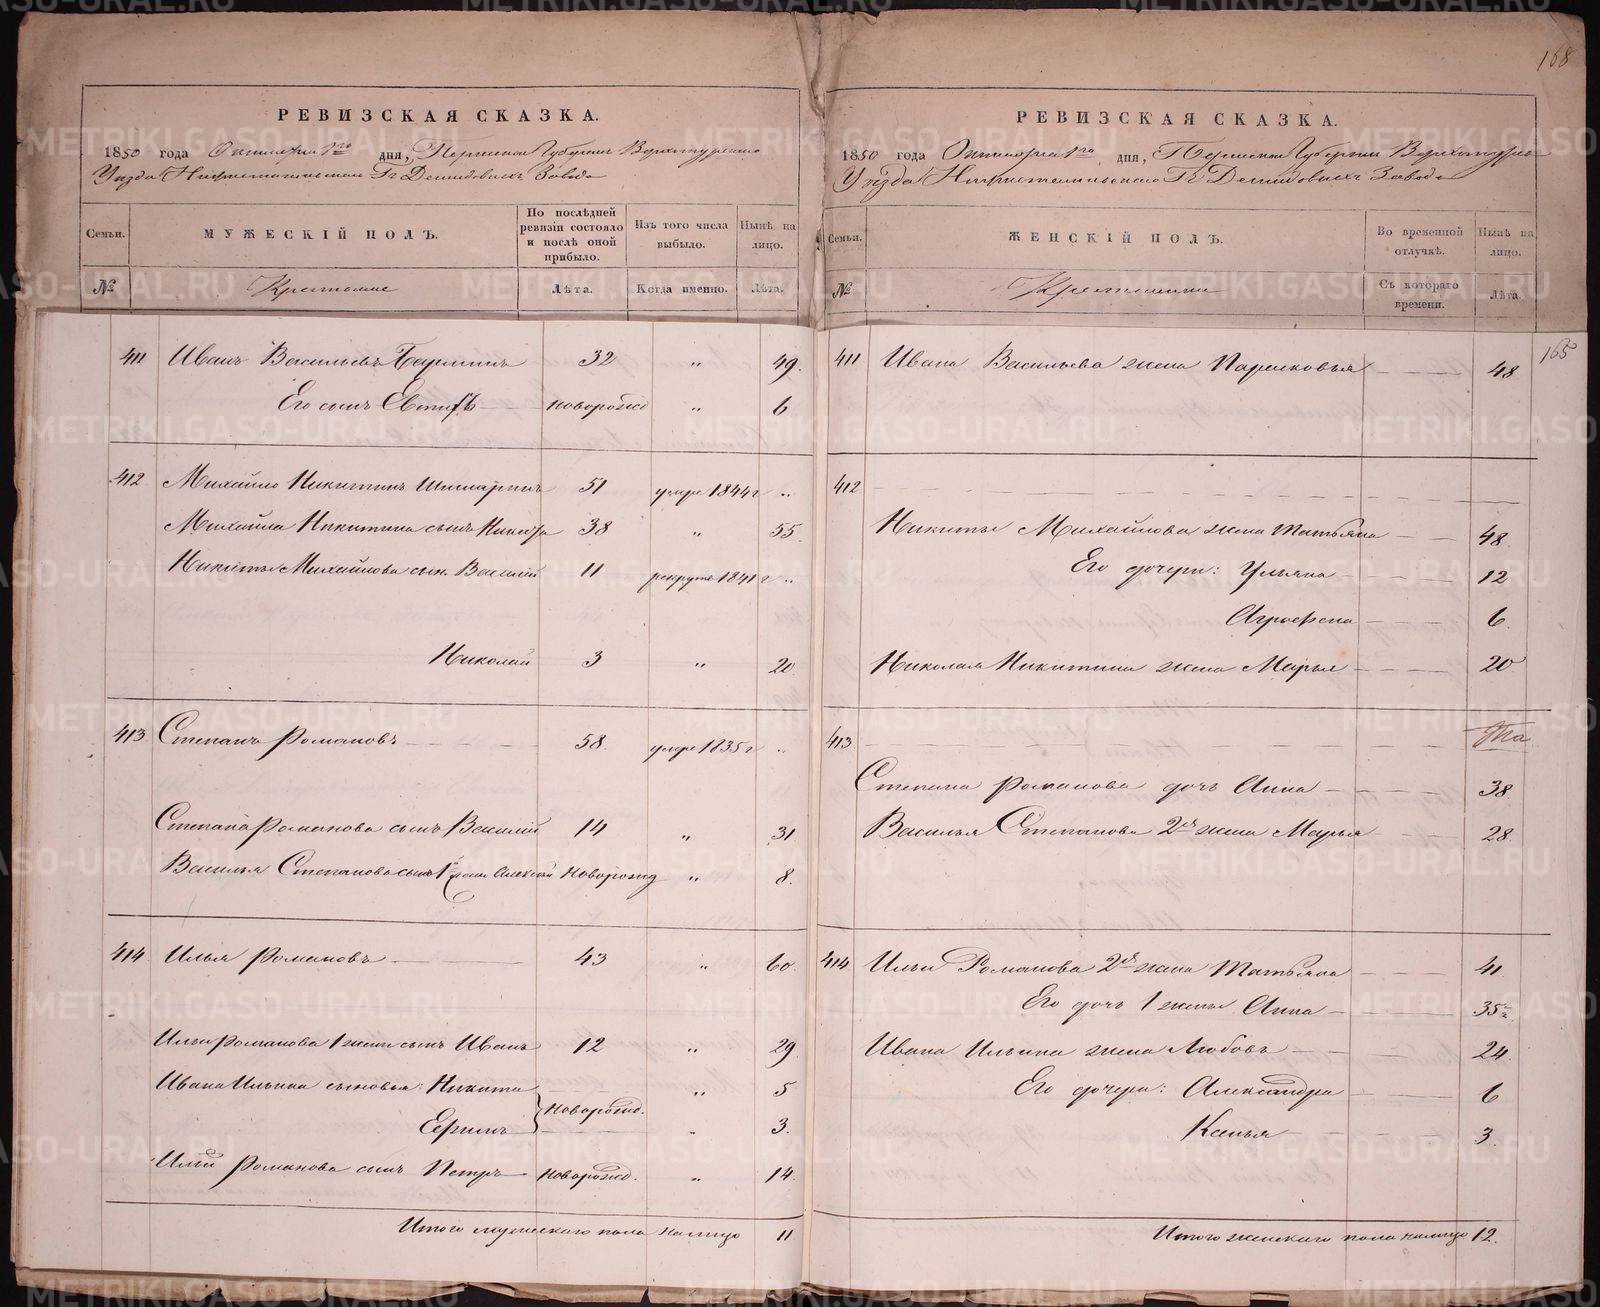 168
РЕВИЗСКАЯ СКАЗКА.
1850 года Октября 1го дня, Пермской Губернии Верхотурскаго
Уезда Нижнетагильскаго Гг Демидовыхъ Завода
Семьи.
МУЖЕСКІЙ ПОЛЪ.
По послѣдней ревизіи состояло и послѣ оной прибыло.
Изъ того числа выбыло.
Нынѣ на лицо.
№ Крестьяне Лѣта. Когда именно. Лѣта.
411 Иванъ Васильевъ 32 " 49.
Его сынъ Евтифѣй новорожд " 6
412 Михайло Никитинъ 51 умре 1844 г "
Михайла Никитина сынъ Никита 38 " 55.
Никиты Михайлова сын. Василій 11 рекрутъ 1841 г "
Николай 3 " 20
413 Степанъ Романовъ 58. умре 1835 г "
Степана Романова сынъ Василій 14 " 31
Василья Степанова сынъ 1й жены Алексей новорожд " 8.
414 Илья Романовъ 43 " 60
Ильи Романова 1 жены сынъ Иванъ 12 " 29
Ивана Ильина сыновья: Никита " 5
новорожд.
Ефимъ " 3.
Ильи Романова сынъ Петръ новорожд. " 14
Итого мужескаго пола налицо 11
РЕВИЗСКАЯ СКАЗКА.
1850 года Октября 1го дня, Пермской Губернии Верхотурск
Уезда Нижнетагильскаго Гг Демидовыхъ Завода
Семьи.
ЖЕНСКІЙ ПОЛЪ.
Во временной отлучкѣ.
Нынѣ на лицо.
№ Крестьянки Съ котораго времени. Лѣта.
165
411 Ивана Васильева жена Парасковья 48
412
Никиты Михайлова жена Татьяна 48.
Его дочери: Ульяна 12
Аграфена 6.
Николая Никитина жена Марья 20
413
Степана Романова дочь Анна 38
Василья Степанова 2я жена Марья 28.
414 Ильи Романова 2я жена Татьяна 41.
Его дочь 1 жены Анна 35
Ивана Ильина жена Любовь 24.
Его дочери: Александра 6
Ксенья 3.
Итого женскаго пола налицо 12.
METRIKI.GASO-URAL.RU